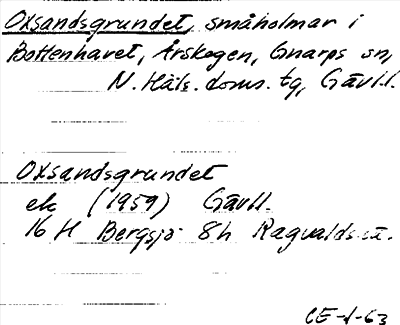 Oxsandsgrundet, småholmar i
Bottenhavet, Årskogen, Gnarps sn,
N. Häls. doms. tg, Gävl.l.
Oxsandsgrundet
ek (1959) Gävl.l.
16 H Bergsjö 8h Ragvalds.
CE-1-63